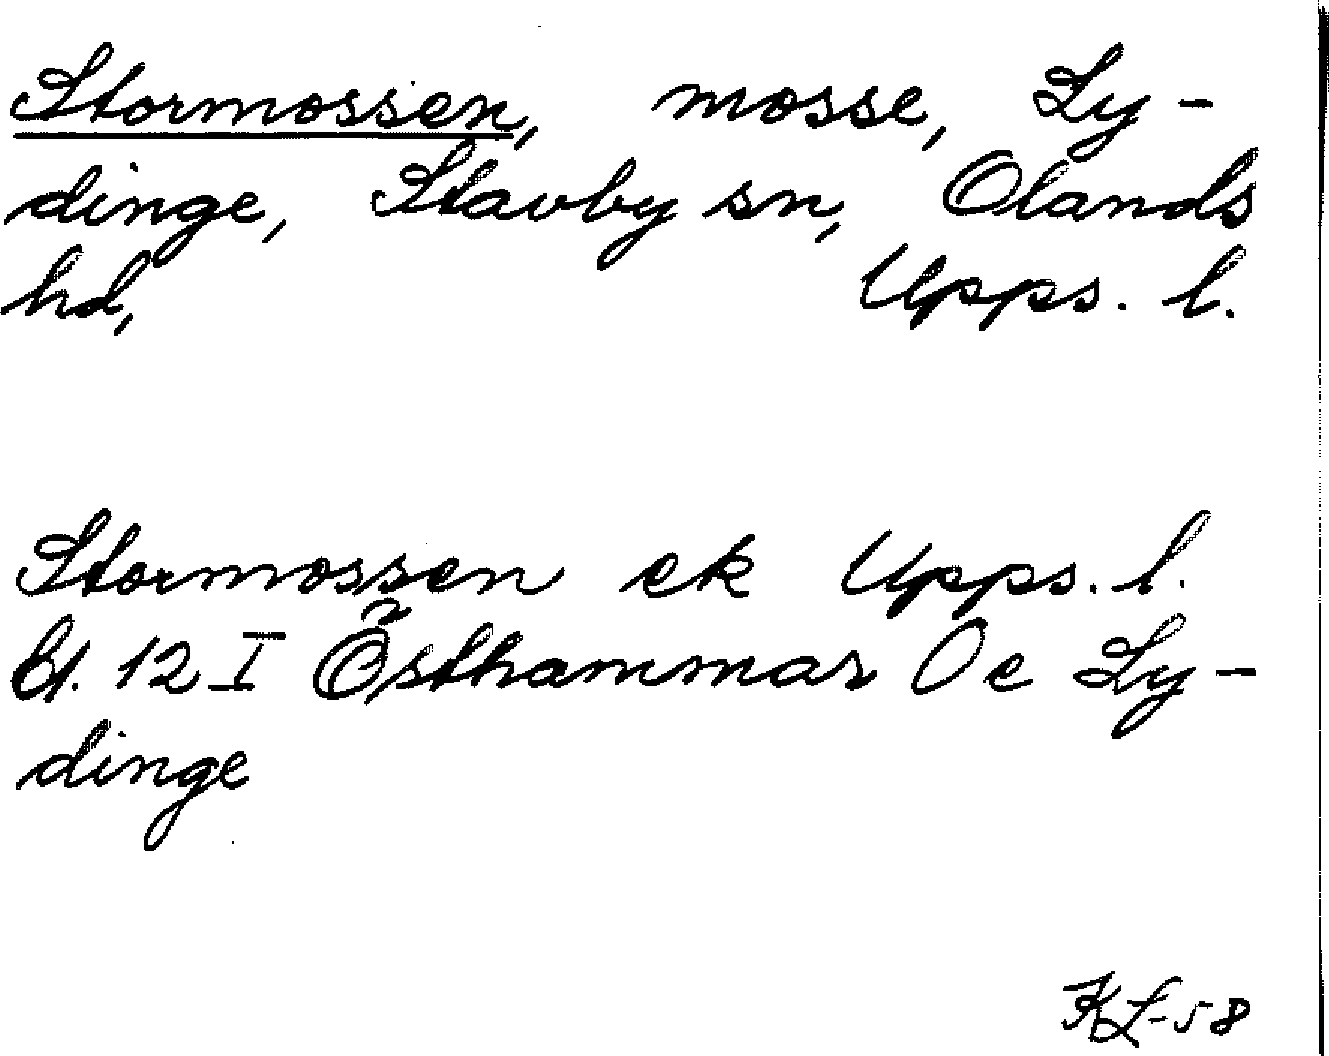 Stormossen, mosse, Ly-
dinge, Stavby sn, Olands
hd, Upps. l.
Stormossen ek Upps. l.
bl. 12 I Östhammar Oe Ly-
dinge
KL-58